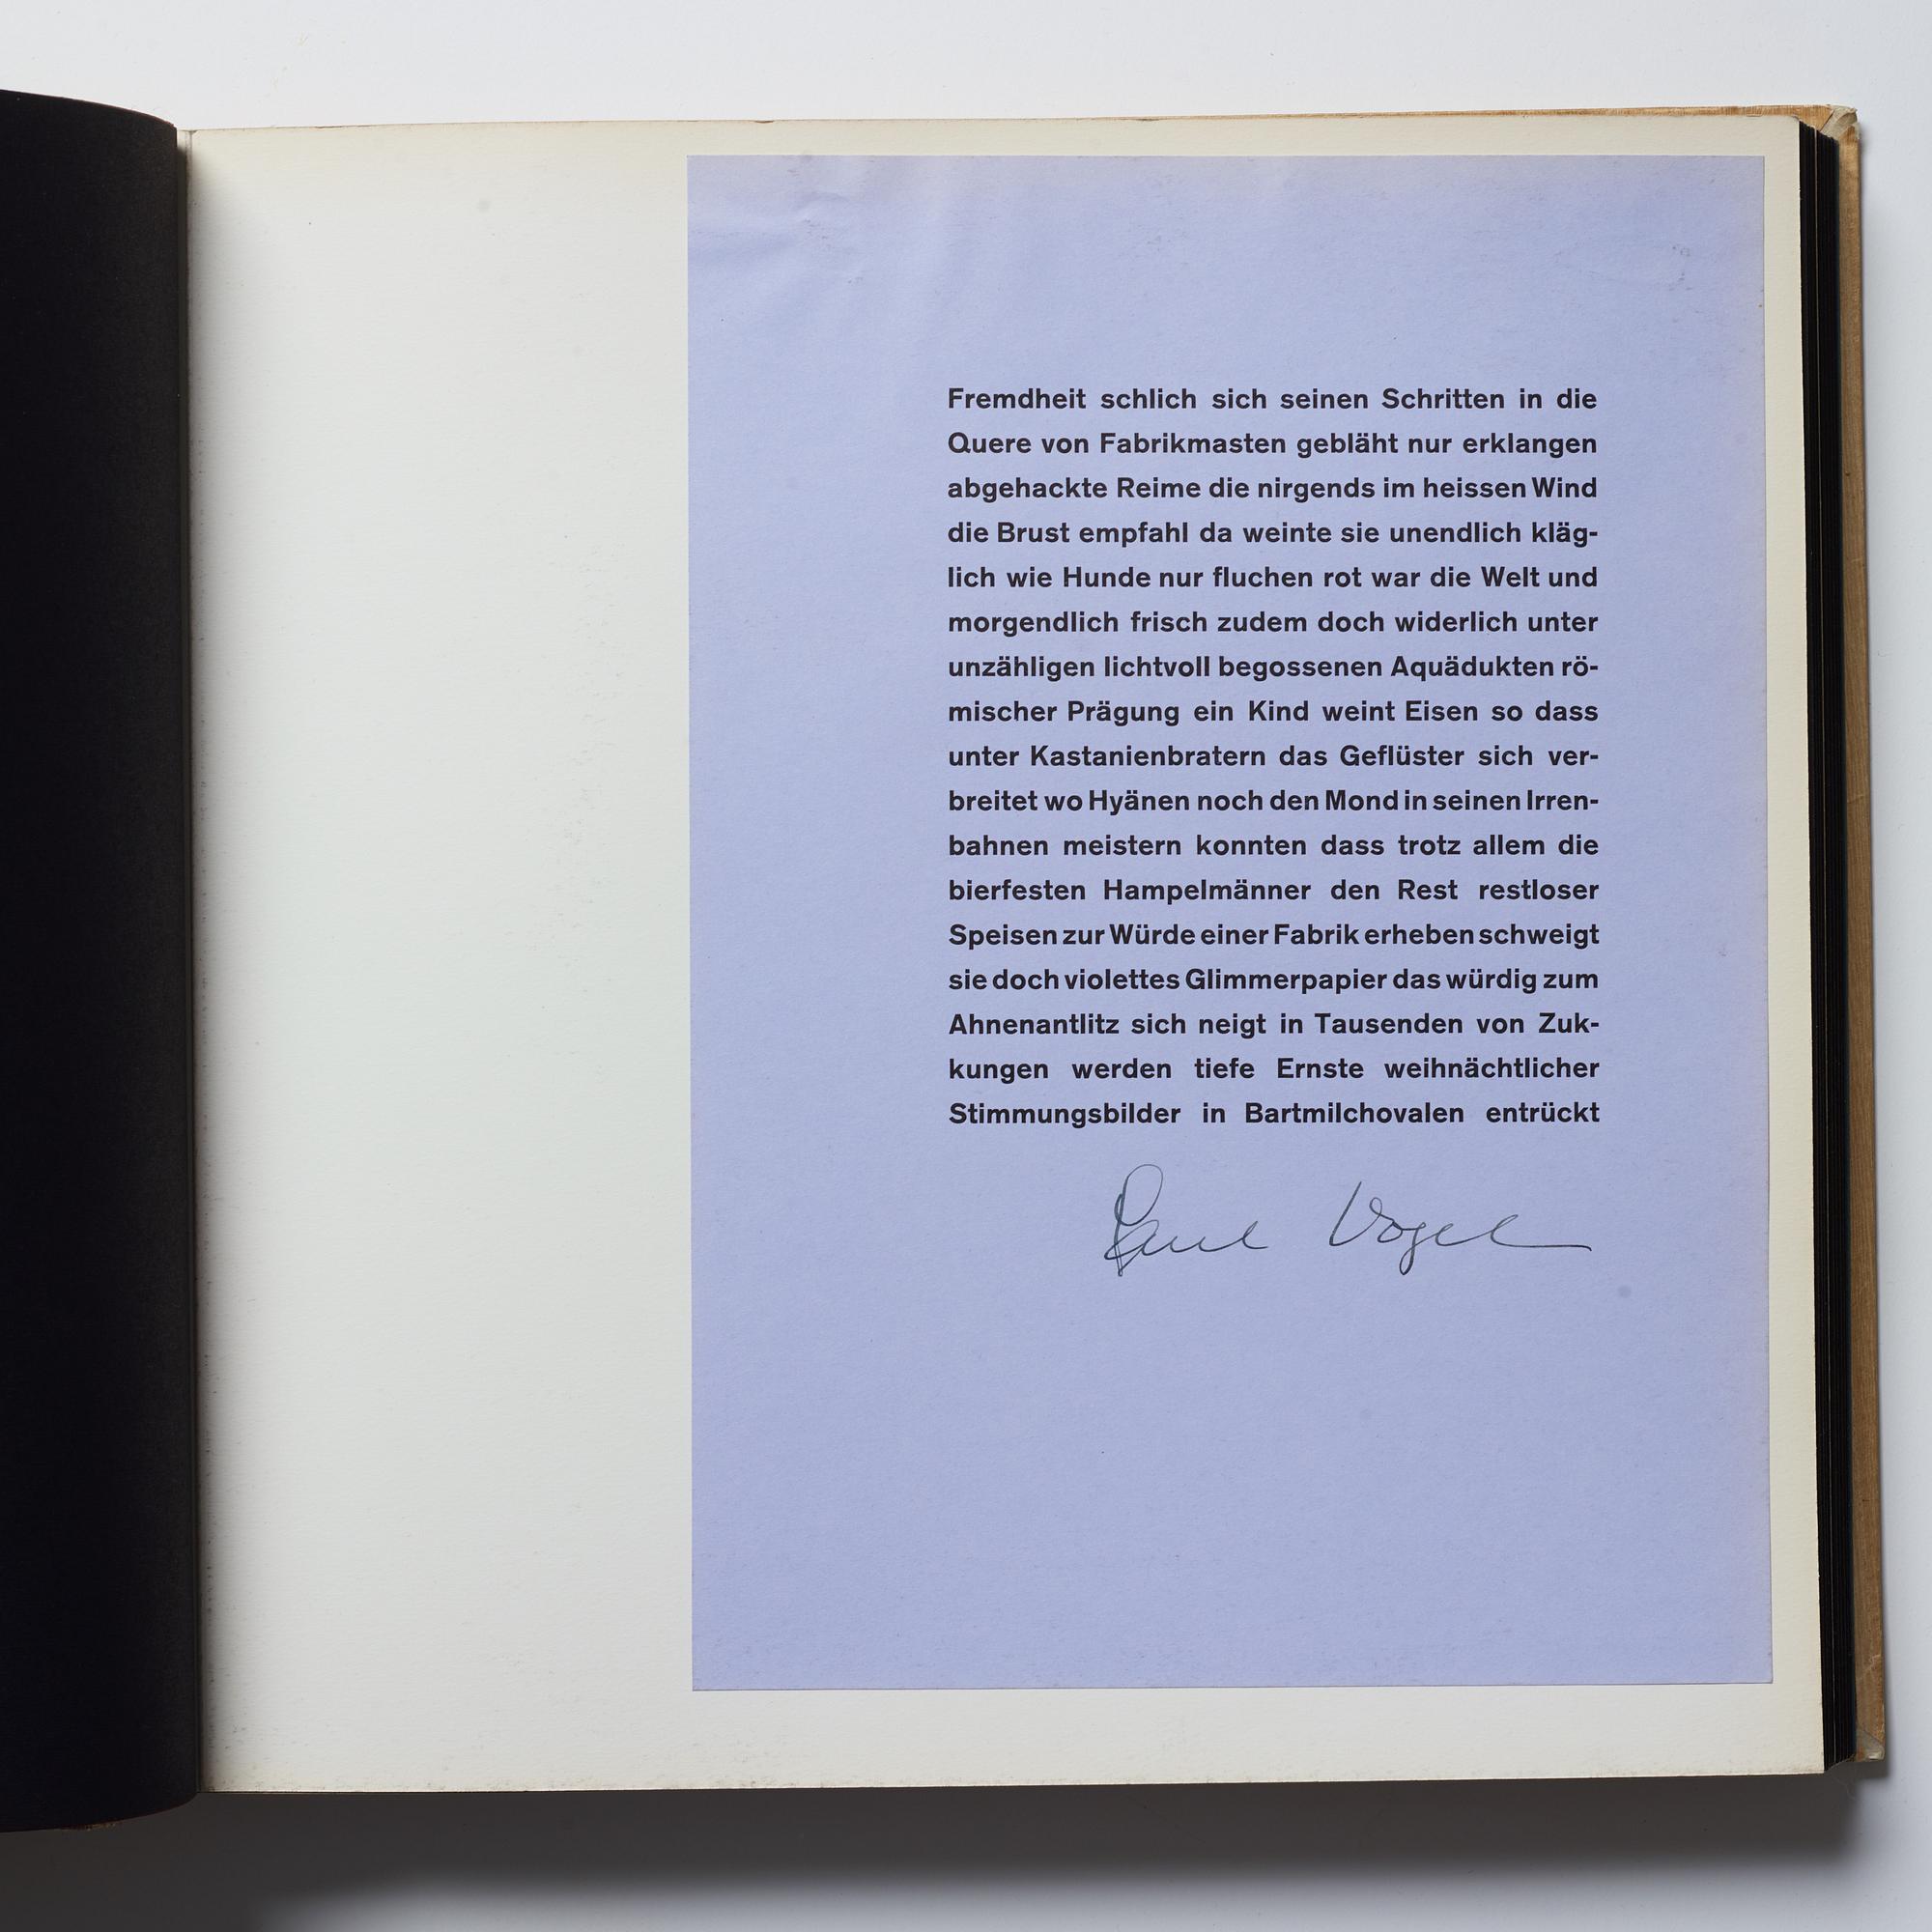 Fremdheit schlich sich seinen Schritten in die
Quere von Fabrikmasten gebläht nur erklangen
abgehackte Reime die nirgends im heissen Wind
die Brust empfahl da weinte sie unendlich kläg-
lich wie Hunde nur fluchen rot war die Welt und
morgendlich frisch zudem doch widerlich unter
unzähligen lichtvoll begossenen Aquädukten rö-
mischer Prägung ein Kind weint Eisen so dass
unter Kastanienbratern das Geflüster sich ver-
breitet wo Hyänen noch den Mond in seinen Irren-
bahnen meistern konnten dass trotz allem die
bierfesten Hampelmänner den Rest restloser
Speisen zur Würde einer Fabrik erheben schweigt
sie doch violettes Glimmerpapier das würdig zum
Ahnenantlitz sich neigt in Tausenden von Zuk-
kungen werden tiefe Ernste weihnächtlicher
Stimmungsbilder in Bartmilchovalen entrückt
Paul Vogel